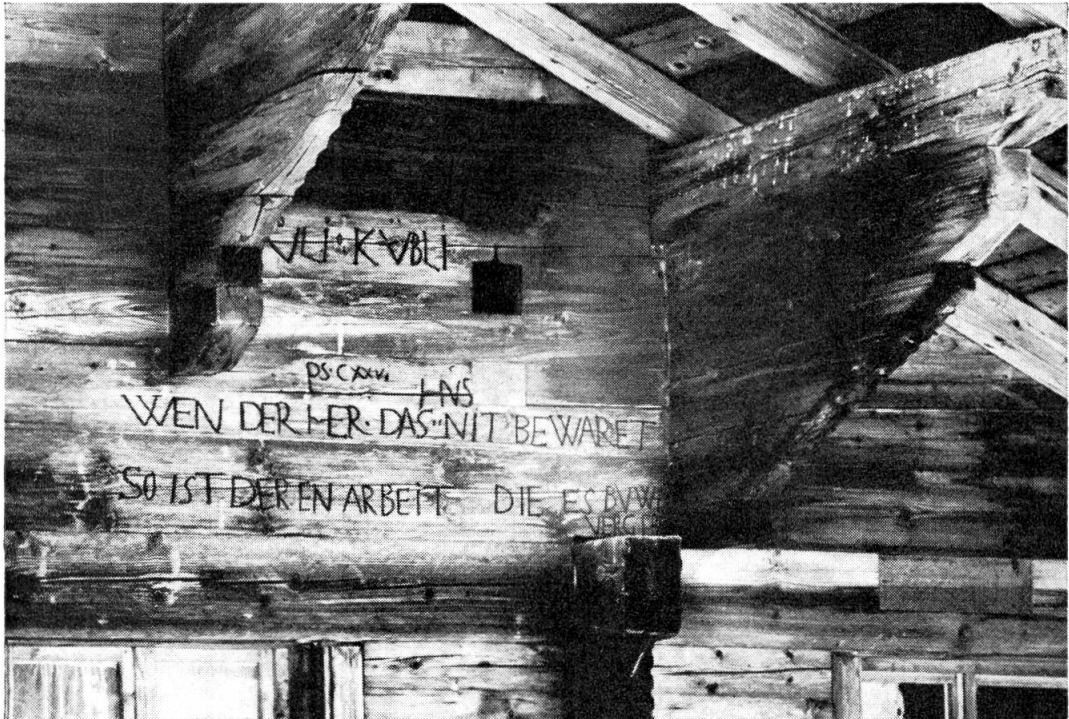 ŮLI·KÜBLI
PS·CXXVI
HVS
WEN DER HER·DAS··NIT BEWARET
SO IST DER EN ARBEIT DIE ES BVW
VERG